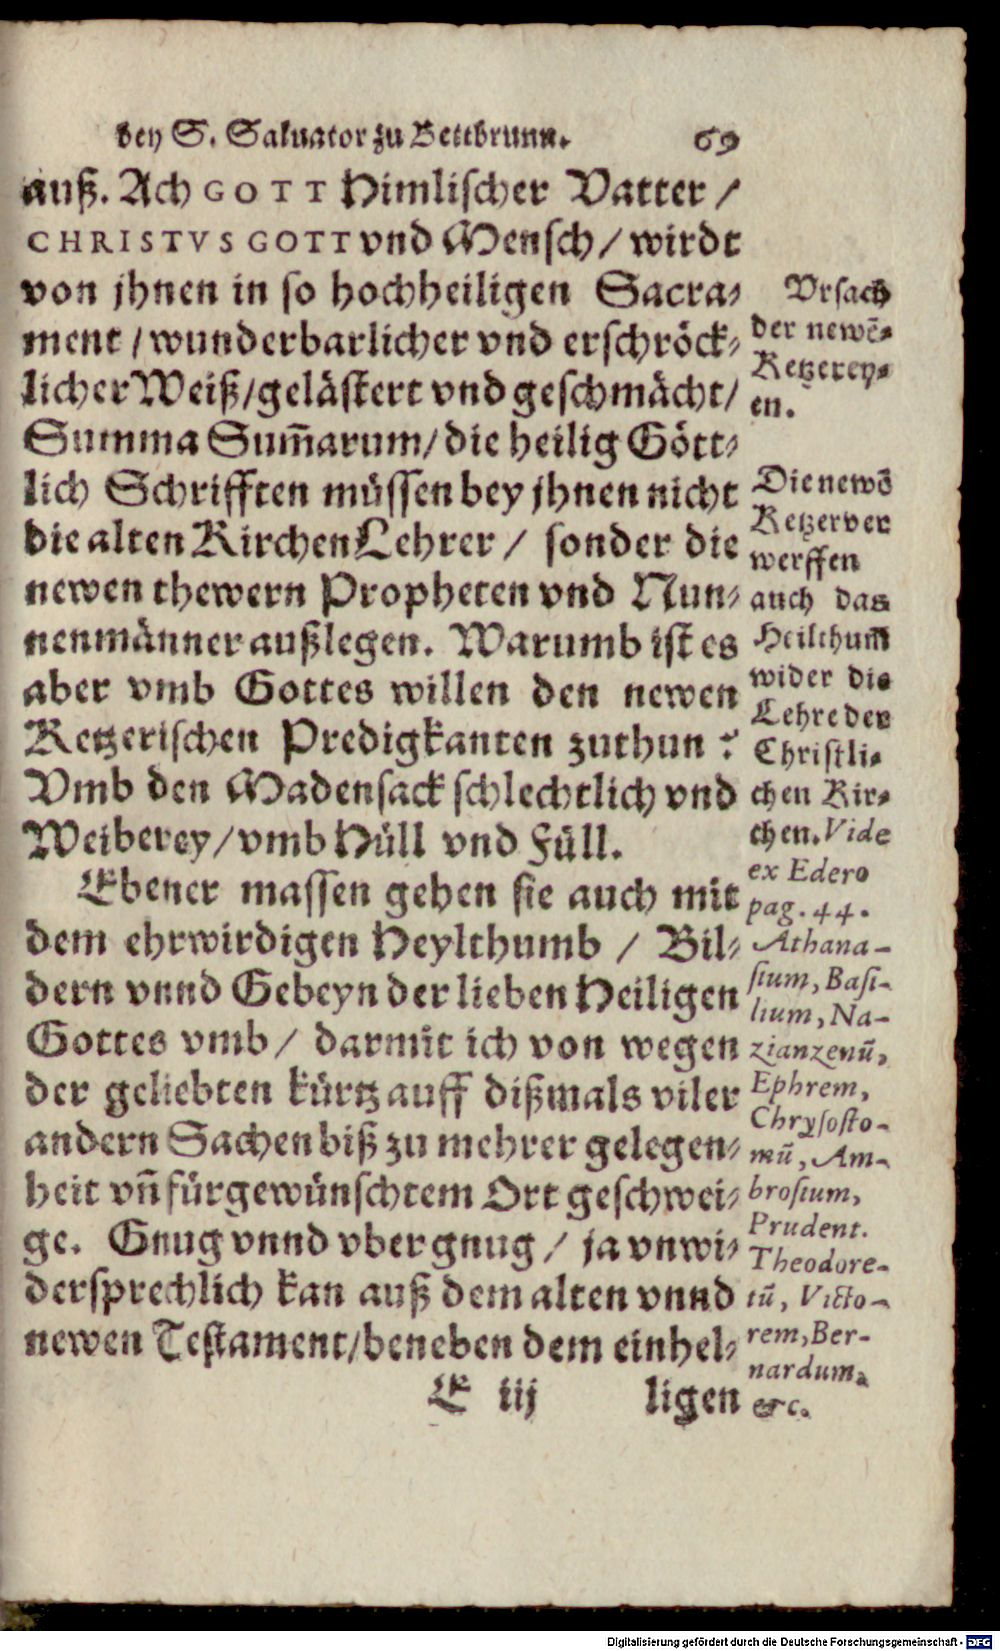 bey S. Saluator zu Bettbrunn. 69
auß. Ach GOTT Himlischer Vatter /
CHRISTVS GOTT vnd Mensch / wirdt
von jhnen in so hochheiligen Sacra-
ment / wunderbarlicher vnd erschröck-
licher Weiß / gelästert vnd geschmächt /
Summa Sum̄arum / die heilig Gött-
lich Schrifften müssen bey jhnen nicht
die alten Kirchen Lehrer / sonder die
newen thewern Propheten vnd Nun-
nenmänner außlegen. Warumb ist es
aber vmb Gottes willen den newen
Ketzerischen Predigkanten zuthun ?
Vmb den Madensack schlechtlich vnd
Weiberey / vmb Hüll vnd Füll.
Ebener massen gehen sie auch mit
dem ehrwirdigen Heylthumb / Bil-
dern vnnd Gebeyn der lieben Heiligen
Gottes vmb / darmit ich von wegen
der geliebten kürtz auff dißmals viler
andern Sachen biß zu mehrer gelegen-
heit vn̄ fürgewünschtem Ort geschwei-
ge. Gnug vnnd vber gnug / ja vnwi-
dersprechlich kan auß dem alten vnnd
newen Testament / beneben dem einhel-
E iij ligen
Vrsach
der newē-
Ketzerey-
en.
Die newō
Ketzer ver
werffen
auch das
Heilthum̄
wider die
Lehre der
Christli-
chen Kir-
chen. Vide
ex Edero
pag. 44.
Athana-
sium, Basi-
lium, Na-
zianzenū,
Ephrem,
Chrysosto-
mū, Am-
brosium,
Prudent.
Theodore-
tū, Victo-
rem, Ber-
nardum,
&c.
Digitalisierung gefördert durch die Deutsche Forschungsgemeinschaft - DFG